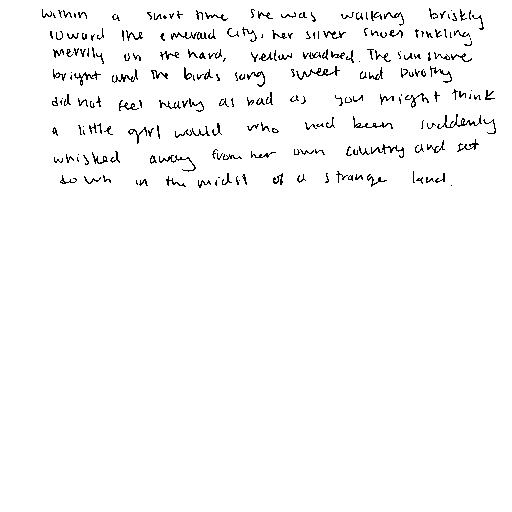 within a short time she was walking briskly
toward the emerald City, her silver shoes tinkling
merrily on the hard, yellow roadbed. The sun shone
bright and the birds sang sweet and Dorothy
did not feel nearly as bad as you might think
a little girl would who had been suddenly
whisked away from her own country and set
down in the midst of a strange land.